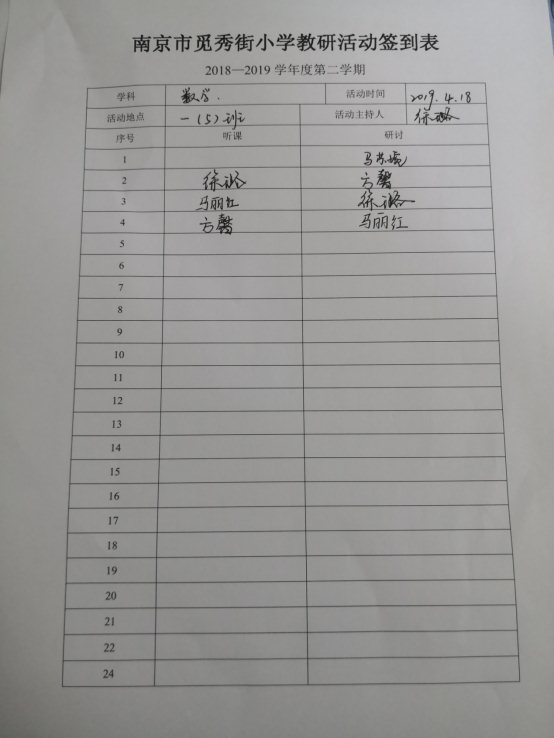 南京市觅秀街小学教研活动签到表
2018—2019 学年度第二学期
学科 数学. 活动时间 2019.4.18
活动地点 一(5)班 活动主持人 徐
序号 听课 研讨
1 马
2 徐 方馨
3 马丽红 徐
4 方馨 马丽红
5
6
7
8
9
10
11
12
13
14
15
16
17
18
19
20
21
22
24